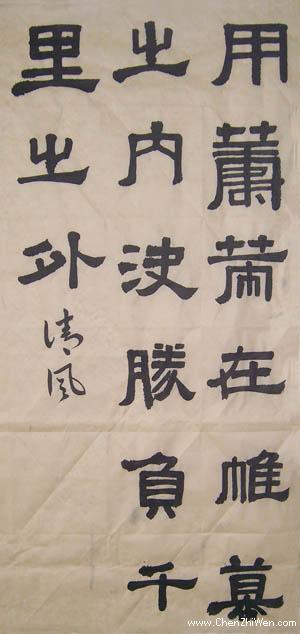 用蕭在帷幕
之内決勝負千
里之外
清風
www.ChenZhiWen.com